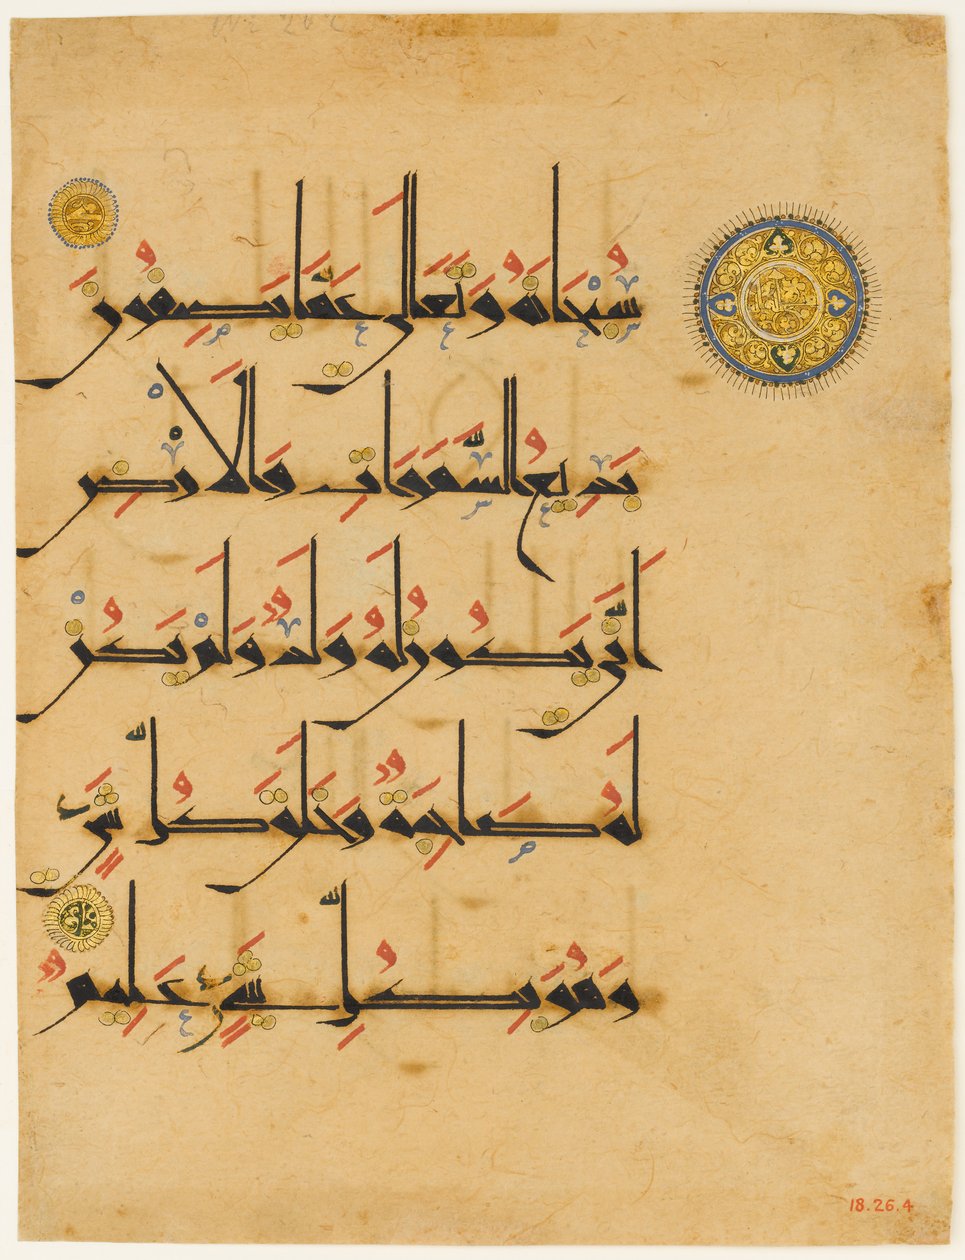 سُبْحَانَهُ وَتَعَالَى عَمَّا يَصِفُونَ
بَدِيعُ السَّمَوَاتِ وَالْأَرْضِ
أَنَّى يَكُونُ لَهُ وَلَدٌ وَلَمْ تَكُنْ
لَهُ صَاحِبَةٌ وَخَلَقَ كُلَّ شَيْءٍ
وَهُوَ بِكُلِّ شَيْءٍ عَلِيمٌ
18.26.4